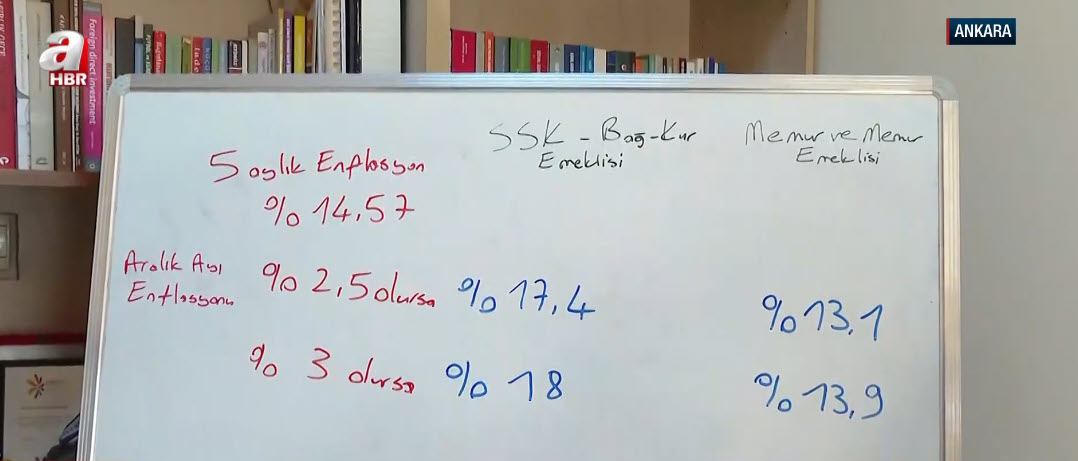 a
HBR
ANKARA
Foreign direct investment
SSK - Bağ-Kur
Emeklisi
Memur ve Memur
Emeklisi
5 aylık Enflasyon
% 14,57
Aralık Ayı
Enflasyonu
% 2,5 olursa % 17,4 % 13,1
% 3 olursa % 18 % 13,9